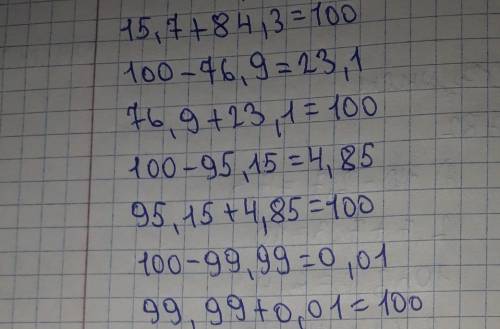 15,7+84,3=100
100-76,9=23,1
76,9+23,1=100
100-95,15=4,85
95,15+4,85=100
100-99,99=0,01
99,99+0,01=100